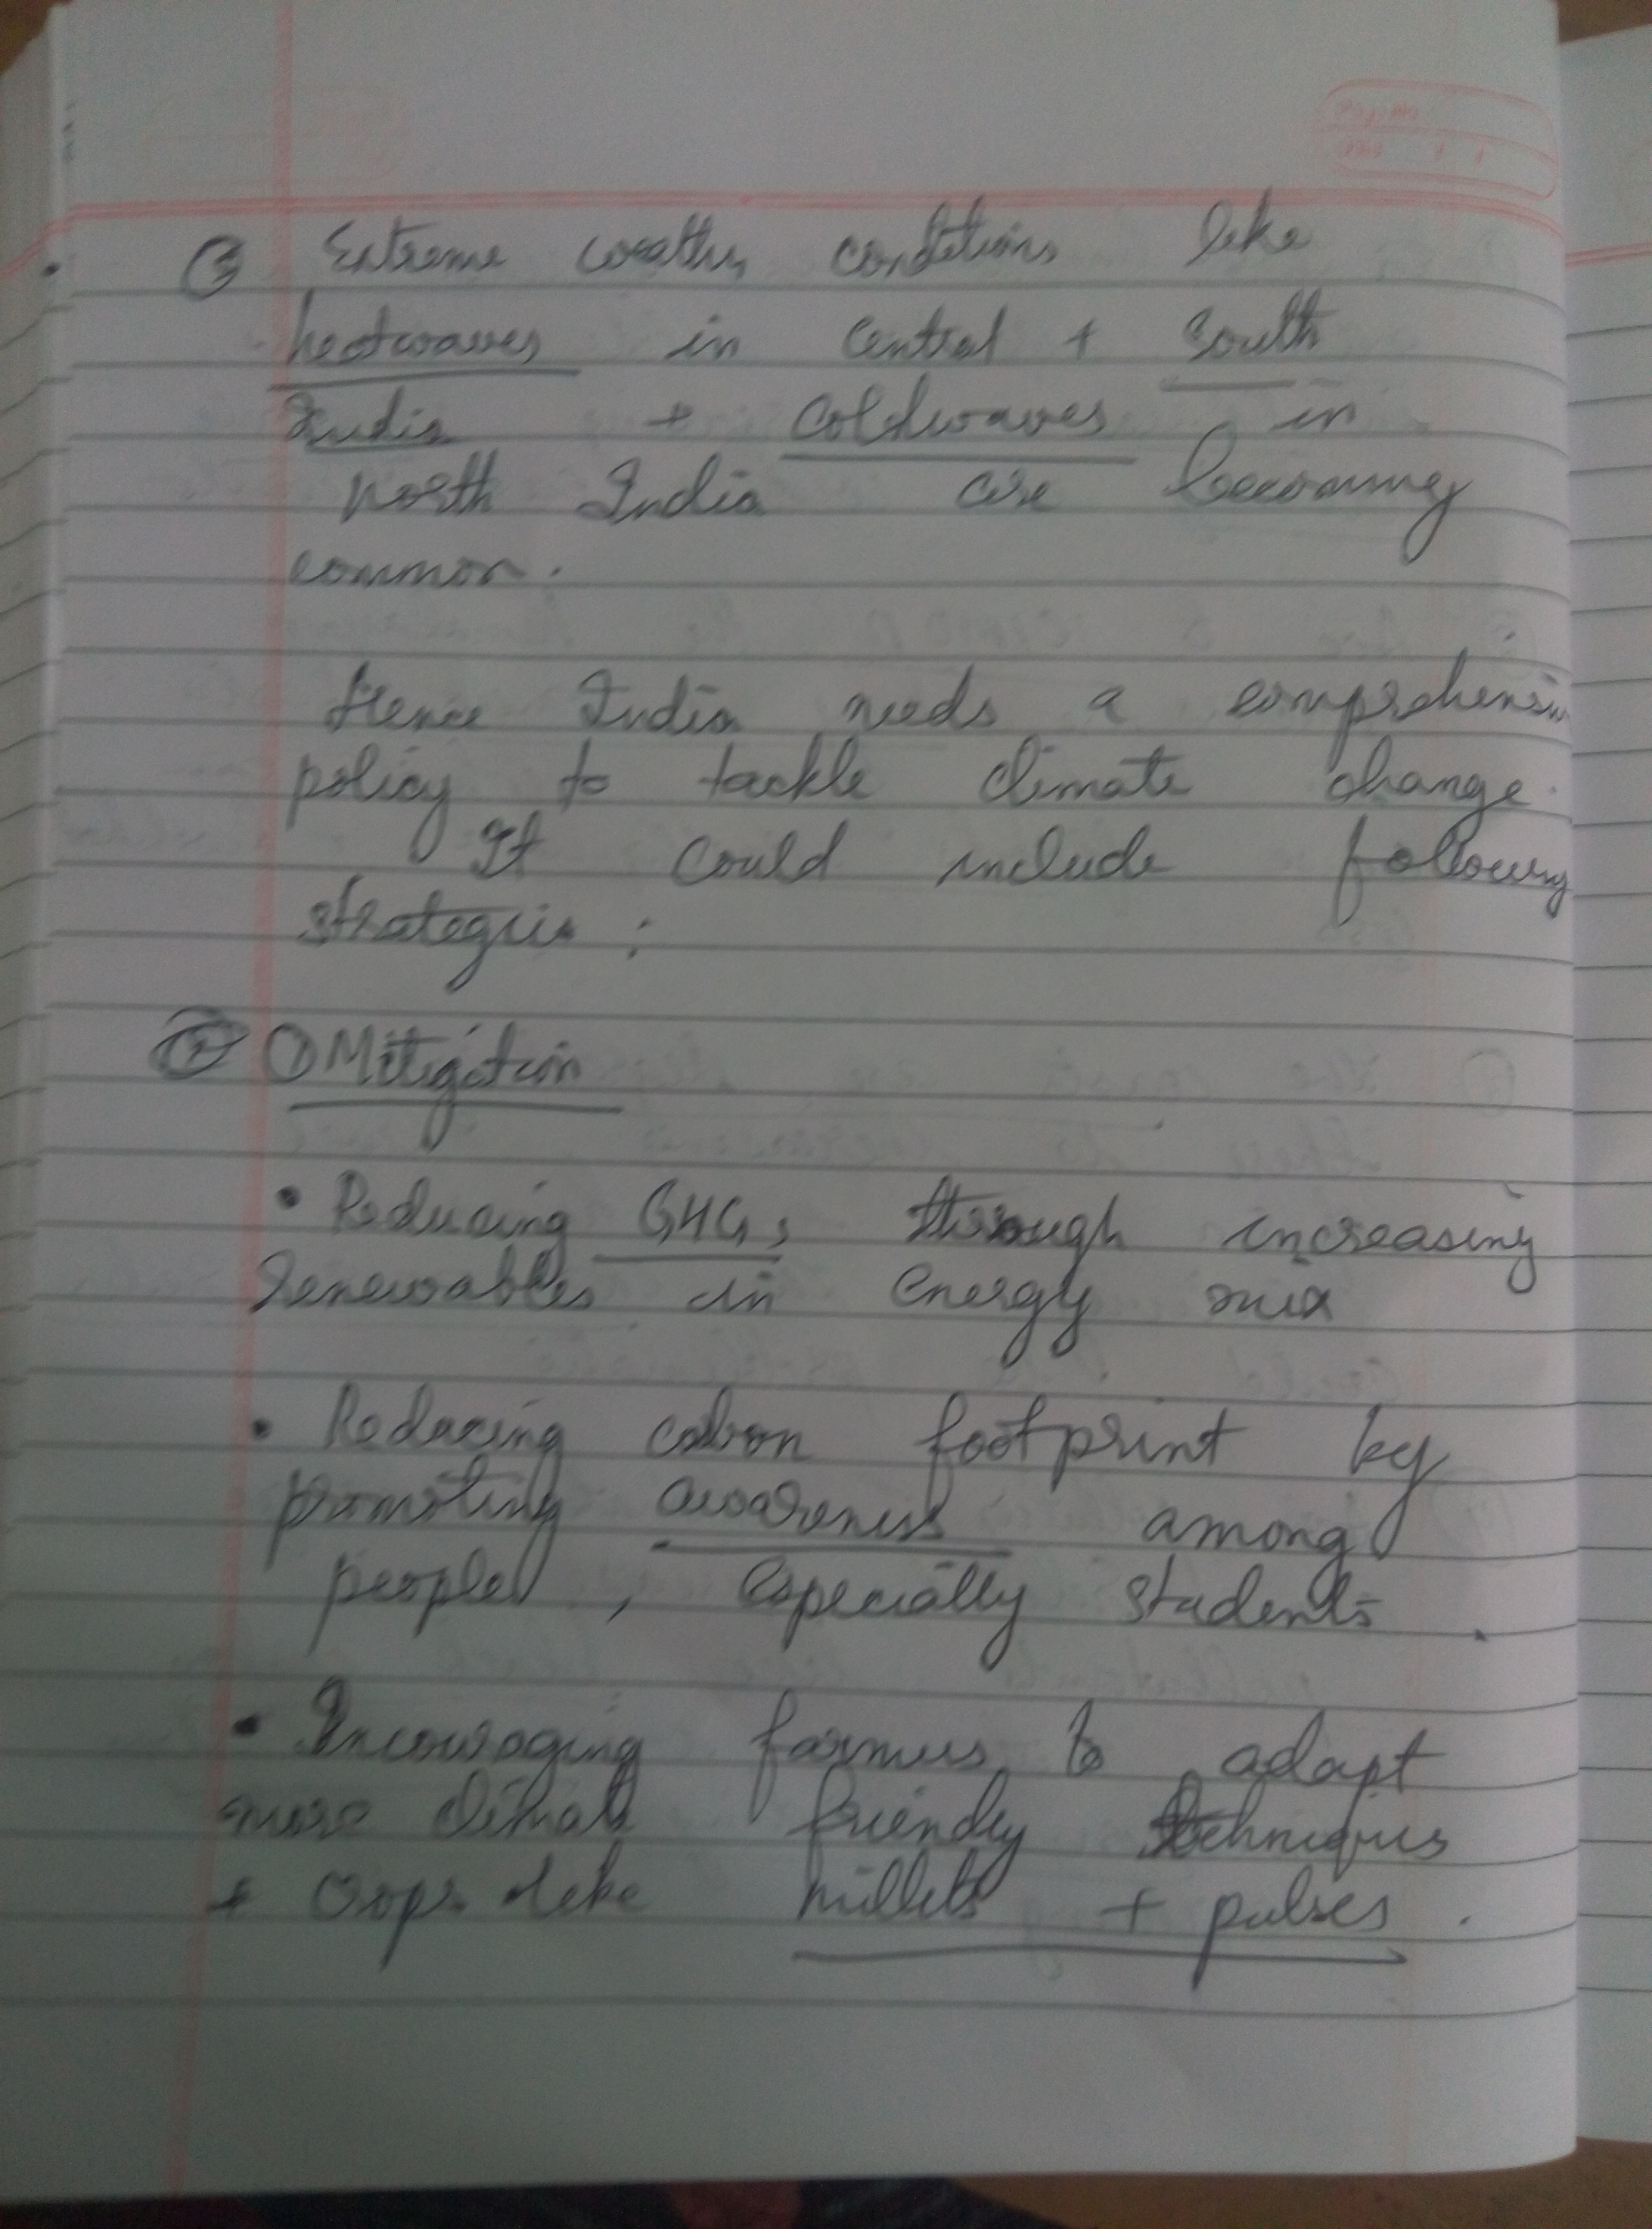 ③ Extreme weather conditions like
heatwaves in Central + South
India + Coldwaves in
North India are becoming
common.
Hence India needs a comprehensive
policy to tackle climate change.
It could include following
strategies :
① Mitigation
• Reducing GHGs through increasing
renewables in energy mix
• Reducing cabon footprint by
promoting awareness among
people , especially students .
• Encouraging farmers to adapt
more climate friendly techniques
+ Crops like millets + pulses .